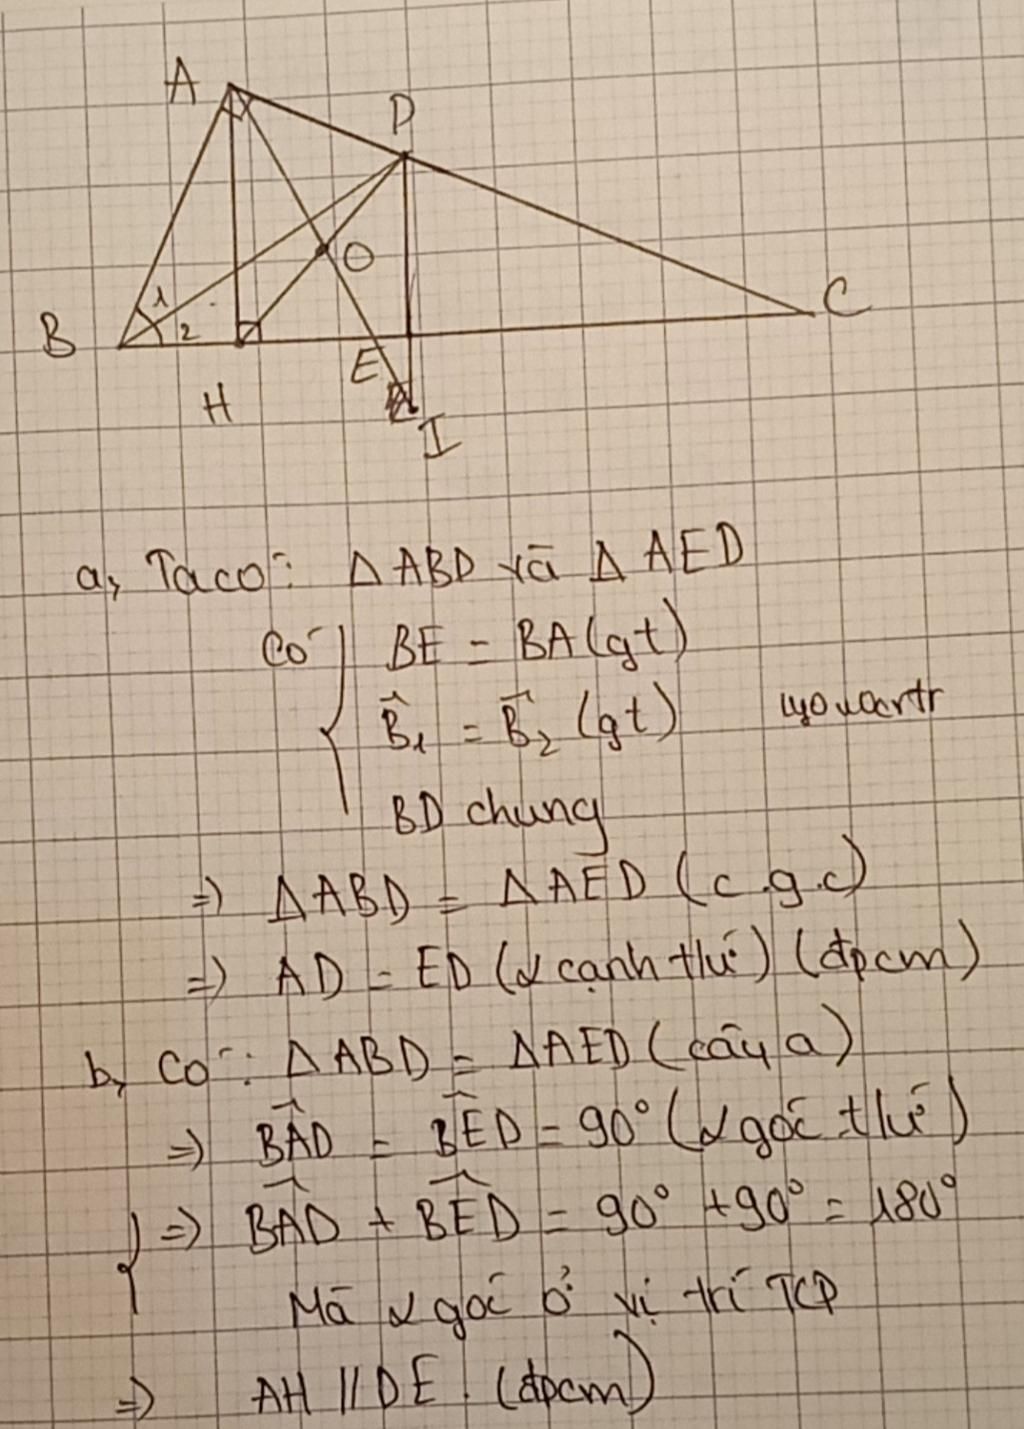 A
D
O
B
1
2
C
H
E
I
a, Ta có: Δ ABD và Δ AED
Có { BE = BA (gt)
B̂₁ = B̂₂ (gt)
BD chung
=) ΔABD = ΔAED (c.g.c)
=) AD = ED (2 cạnh t/ứ) (đpcm)
b, Có: ΔABD = ΔAED (câu a)
=) BÂD = BÊD = 90° (2 góc t/ứ)
{ =) BÂD + BÊD = 90° + 90° = 180°
Mà 2 góc ở vị trí TCP
=) AH // DE. (đpcm)